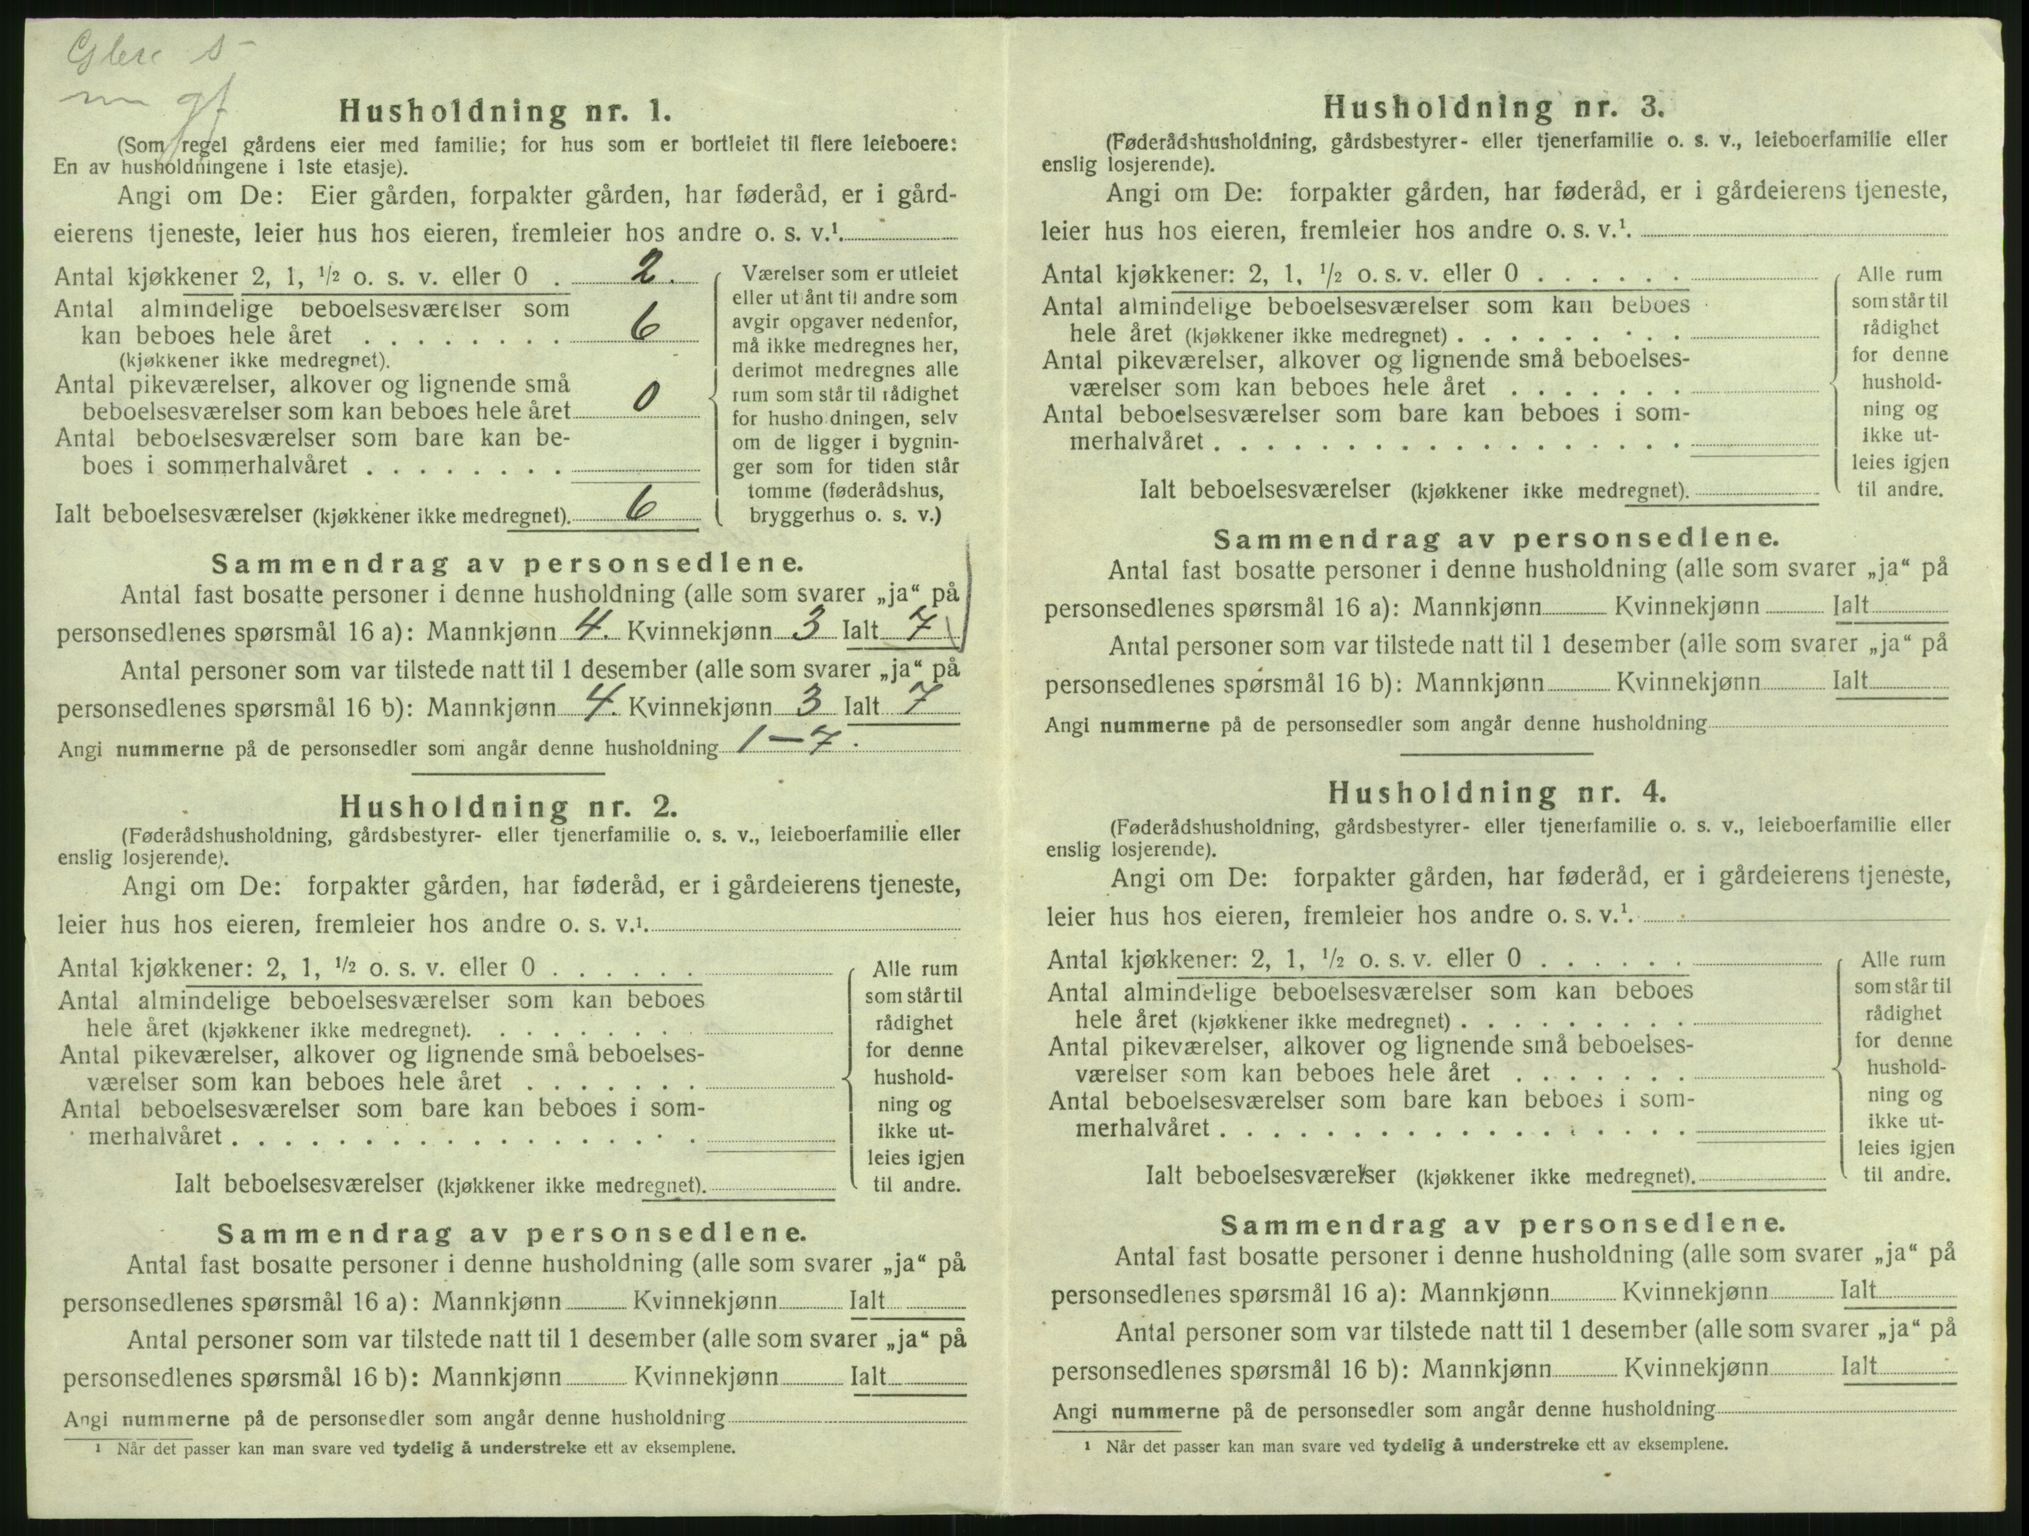 Husholdning nr. 1.
(Som regel gårdens eier med familie; for hus som er bortleiet til flere leieboere:
En av husholdningene i 1ste etasje).
Angi om De: Eier gården, forpakter gården, har føderåd, er i gård-
eierens tjeneste, leier hus hos eieren, fremleier hos andre o. s. v.¹.
Antal kjøkkener 2, 1, ½ o. s. v. eller 0 . 2.
Antal almindelige beboelsesværelser som
kan beboes hele året . . . . . . . . 6
(kjøkkener ikke medregnet).
Antal pikeværelser, alkover og lignende små
beboelsesværelser som kan beboes hele året 0
Antal beboelsesværelser som bare kan be-
boes i sommerhalvåret . . . . . . . .
Ialt beboelsesværelser (kjøkkener ikke medregnet). 6
Værelser som er utleiet
eller utlånt til andre som
avgir opgaver nedenfor,
må ikke medregnes her,
derimot medregnes alle
rum som står til rådighet
for husholdningen, selv
om de ligger i bygnin-
ger som for tiden står
tomme (føderådshus,
bryggerhus o. s. v.)
Sammendrag av personsedlene.
Antal fast bosatte personer i denne husholdning (alle som svarer „ja“ på
personsedlenes spørsmål 16 a): Mannkjønn 4. Kvinnekjønn 3 Ialt 7
Antal personer som var tilstede natt til 1 desember (alle som svarer „ja“ på
personsedlenes spørsmål 16 b): Mannkjønn 4. Kvinnekjønn 3 Ialt 7
Angi nummerne på de personsedler som angår denne husholdning 1 – 7.
Husholdning nr. 2.
(Føderådshusholdning, gårdsbestyrer- eller tjenerfamilie o. s. v., leieboerfamilie eller
enslig losjerende).
Angi om De: forpakter gården, har føderåd, er i gårdeierens tjeneste,
leier hus hos eieren, fremleier hos andre o. s. v.¹.
Antal kjøkkener: 2, 1, ½ o. s. v. eller 0 . . . . . .
Antal almindelige beboelsesværelser som kan beboes
hele året (kjøkkener ikke medregnet). . . . . . . . .
Antal pikeværelser, alkover og lignende små beboelses-
værelser som kan beboes hele året . . . . . . .
Antal beboelsesværelser som bare kan beboes i som-
merhalvåret . . . . . . . . . . . . . . . . . .
Ialt beboelsesværelser (kjøkkener ikke medregnet).
Alle rum
som står til
rådighet
for denne
hushold-
ning og
ikke ut-
leies igjen
til andre.
Sammendrag av personsedlene.
Antal fast bosatte personer i denne husholdning (alle som svarer „ja“ på
personsedlenes spørsmål 16 a): Mannkjønn Kvinnekjønn Ialt
Antal personer som var tilstede natt til 1 desember (alle som svarer „ja“ på
personsedlenes spørsmål 16 b): Mannkjønn Kvinnekjønn Ialt
Angi nummerne på de personsedler som angår denne husholdning
¹ Når det passer kan man svare ved tydelig å understreke ett av eksemplene.
Husholdning nr. 3.
(Føderådshusholdning, gårdsbestyrer- eller tjenerfamilie o. s. v., leieboerfamilie eller
enslig losjerende).
Angi om De: forpakter gården, har føderåd, er i gårdeierens tjeneste,
leier hus hos eieren, fremleier hos andre o. s. v.¹.
Antal kjøkkener: 2, 1, ½ o. s. v. eller 0 . . . . . .
Antal almindelige beboelsesværelser som kan beboes
hele året (kjøkkener ikke medregnet) . . . . . . . . .
Antal pikeværelser, alkover og lignende små beboelses-
værelser som kan beboes hele året . . . . . . .
Antal beboelsesværelser som bare kan beboes i som-
merhalvåret . . . . . . . . . . . . . . . . . .
Ialt beboelsesværelser (kjøkkener ikke medregnet).
Alle rum
som står til
rådighet
for denne
hushold-
ning og
ikke ut-
leies igjen
til andre.
Sammendrag av personsedlene.
Antal fast bosatte personer i denne husholdning (alle som svarer „ja“ på
personsedlenes spørsmål 16 a): Mannkjønn Kvinnekjønn Ialt
Antal personer som var tilstede natt til 1 desember (alle som svarer „ja“ på
personsedlenes spørsmål 16 b): Mannkjønn Kvinnekjønn Ialt
Angi nummerne på de personsedler som angår denne husholdning
Husholdning nr. 4.
(Føderådshusholdning, gårdsbestyrer- eller tjenerfamilie o. s. v., leieboerfamilie eller
enslig losjerende).
Angi om De: forpakter gården, har føderåd, er i gårdeierens tjeneste,
leier hus hos eieren, fremleier hos andre o. s. v.¹.
Antal kjøkkener: 2, 1, ½ o. s. v. eller 0 . . . . . .
Antal almindelige beboelsesværelser som kan beboes
hele året (kjøkkener ikke medregnet) . . . . . . . . .
Antal pikeværelser, alkover og lignende små beboelses-
værelser som kan beboes hele året . . . . . . .
Antal beboelsesværelser som bare kan beboes i som-
merhalvåret . . . . . . . . . . . . . . . . . .
Ialt beboelsesværelser (kjøkkener ikke medregnet).
Alle rum
som står til
rådighet
for denne
hushold-
ning og
ikke ut-
leies igjen
til andre.
Sammendrag av personsedlene.
Antal fast bosatte personer i denne husholdning (alle som svarer „ja“ på
personsedlenes spørsmål 16 a): Mannkjønn Kvinnekjønn Ialt
Antal personer som var tilstede natt til 1 desember (alle som svarer „ja“ på
personsedlenes spørsmål 16 b): Mannkjønn Kvinnekjønn Ialt
Angi nummerne på de personsedler som angår denne husholdning
¹ Når det passer kan man svare ved tydelig å understreke ett av eksemplene.